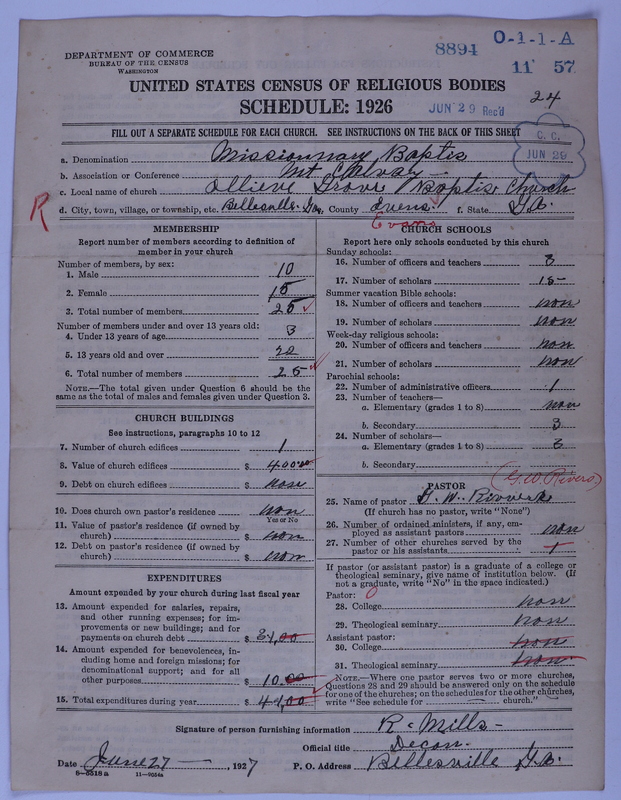 DEPARTMENT OF COMMERCE
BUREAU OF THE CENSUS
WASHINGTON
8894
O-1-1-A
11 57
UNITED STATES CENSUS OF RELIGIOUS BODIES
SCHEDULE: 1926
JUN 29 Rec'd
24
FILL OUT A SEPARATE SCHEDULE FOR EACH CHURCH. SEE INSTRUCTIONS ON THE BACK OF THIS SHEET
C. C.
JUN 29
a. Denomination Missionnary Baptis
b. Association or Conference Mt Calvay
c. Local name of church Ollieve Grove Baptis Church
R
d. City, town, village, or township, etc. Bellesville Ga. County Evens f. State Ga.
Evans
MEMBERSHIP
Report number of members according to definition of
member in your church
Number of members, by sex:
1. Male 10
2. Female 15
3. Total number of members 25
Number of members under and over 13 years old:
4. Under 13 years of age 3
5. 13 years old and over 22
6. Total number of members 25
NOTE.—The total given under Question 6 should be
the same as the total of males and females given under Question 3.
CHURCH BUILDINGS
See instructions, paragraphs 10 to 12
7. Number of church edifices 1
8. Value of church edifices $ 400.00
9. Debt on church edifices $ none
10. Does church own pastor's residence non
Yes or No
11. Value of pastor's residence (if owned by
church) $ non
12. Debt on pastor's residence (if owned by
church) $ non
EXPENDITURES
Amount expended by your church during last fiscal year
13. Amount expended for salaries, repairs,
and other running expenses; for im-
provements or new buildings; and for
payments on church debt $ 34,00
14. Amount expended for benevolences, in-
cluding home and foreign missions; for
denominational support; and for all
other purposes $ 10.00
15. Total expenditures during year $ 44,00
CHURCH SCHOOLS
Report here only schools conducted by this church
Sunday schools:
16. Number of officers and teachers 3
17. Number of scholars 15
Summer vacation Bible schools:
18. Number of officers and teachers non
19. Number of scholars non
Week-day religious schools:
20. Number of officers and teachers non
21. Number of scholars non
Parochial schools:
22. Number of administrative officers 1
23. Number of teachers—
a. Elementary (grades 1 to 8) non
b. Secondary 3
24. Number of scholars—
a. Elementary (grades 1 to 8) 3
b. Secondary
PASTOR
(G.W Rivers)
25. Name of pastor G. W.
(If church has no pastor, write "None")
26. Number of ordained ministers, if any, em-
ployed as assistant pastors non
27. Number of other churches served by the
pastor or his assistants
If pastor (or assistant pastor) is a graduate of a college or
theological seminary, give name of institution below. (If
not a graduate, write "No" in the space indicated.)
Pastor: 0
28. College non
29. Theological seminary non
Assistant pastor:
30. College non
31. Theological seminary non
NOTE.—Where one pastor serves two or more churches,
Questions 28 and 29 should be answered only on the schedule
for one of the churches; on the schedules for the other churches,
write "See schedule for church."
Signature of person furnishing information R. Mills
Official title Decon.
Date June 27 1927
P. O. Address Bellesville Ga.
8-5518 a 11-9054a